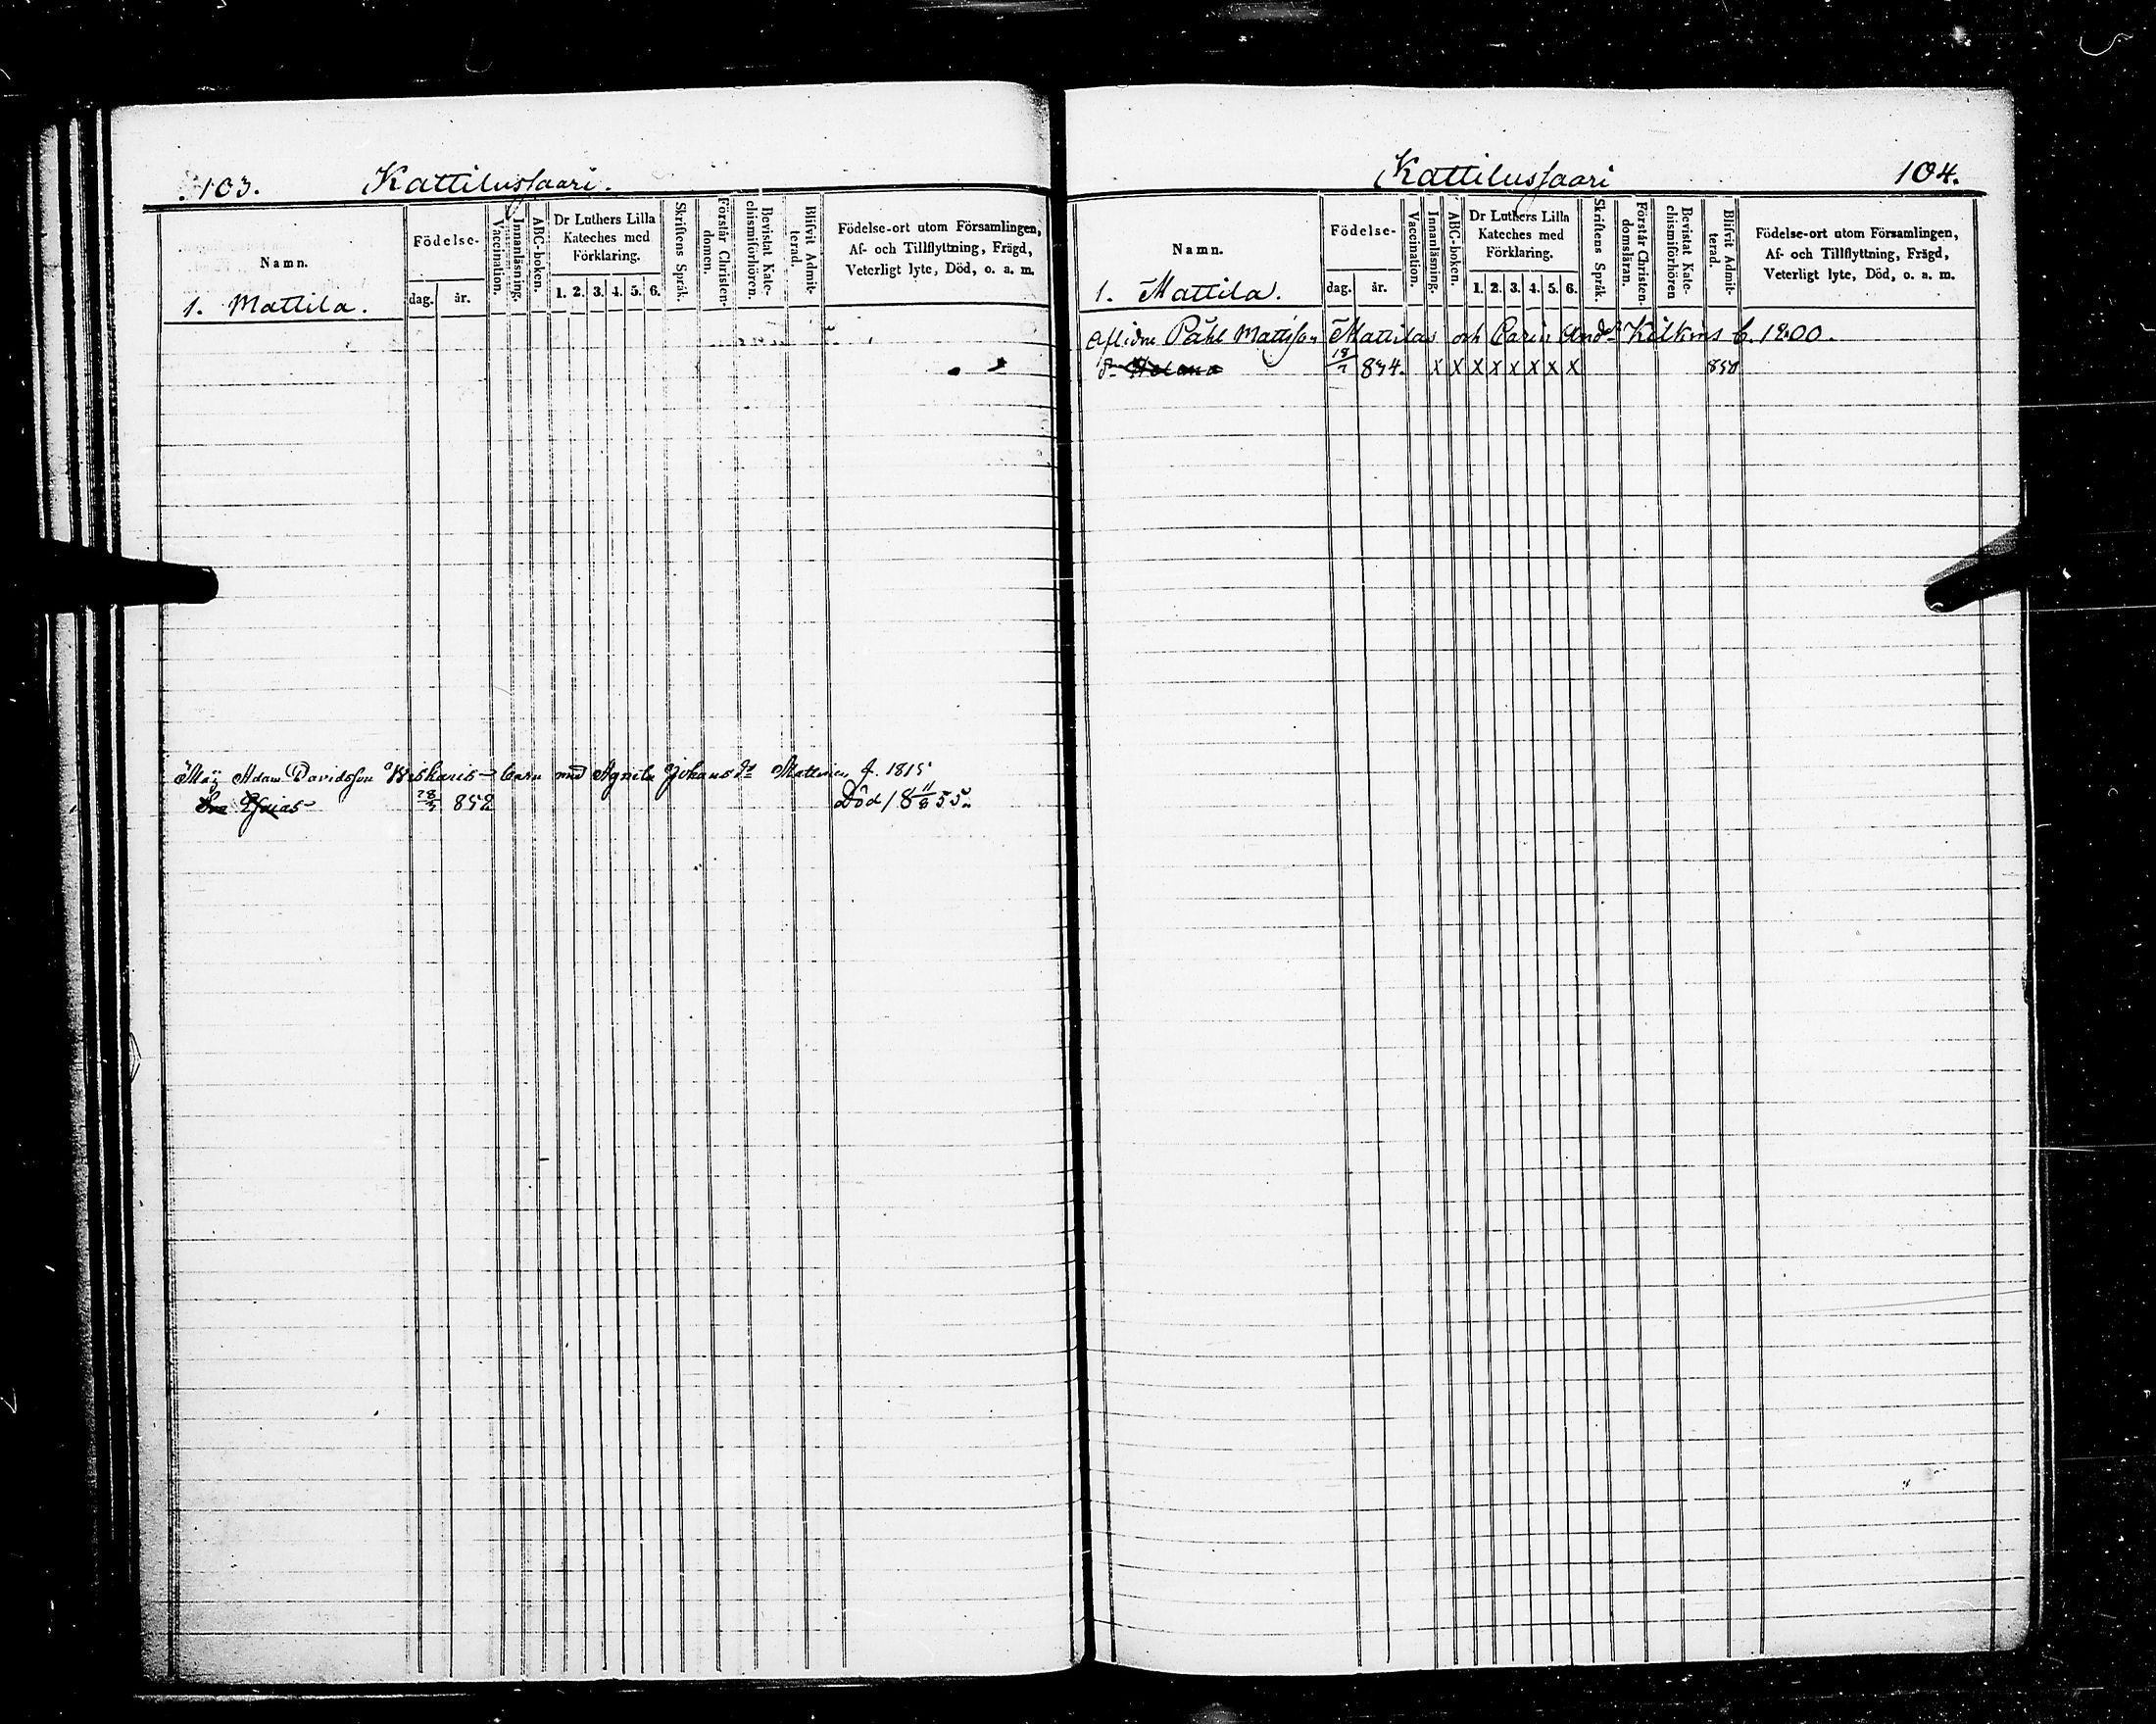 103. Kattilussaari.
Namn.
Födelse-
dag. år.
Vaccination.
Innanläsning.
ABC-boken.
Dr Luthers Lilla
Kateches med
Förklaring.
1. 2. 3. 4. 5. 6.
Skriftens Språk.
Förstår Christen-
domen.
Bevistat Kate-
chismiförhören.
Blifvit Admit-
terad.
Födelse-ort utom Församlingen,
Af- och Tillflyttning, Frägd,
Veterligt lyte, Död, o. a. m.
1. Mattila.
Adam Davidsson barn med Agneta Johansdr f. 1815
Esaias 28/5 852 Död 18 11/8 55.
Kattilussaari 104.
Namn.
Födelse-
dag. år.
Vaccination.
Innanläsning.
ABC-boken.
Dr Luthers Lilla
Kateches med
Förklaring.
1. 2. 3. 4. 5. 6.
Skriftens Språk.
Förstår Christen-
domsläran.
Bevistat Kate-
chismiförhören
Blifvit Admit-
terad.
Födelse-ort utom Församlingen,
Af- och Tillflyttning, Frägd,
Veterligt lyte, Död, o. a. m.
1. Mattila.
Aflidne Påhl Mattsson Mattilas och Carin Andr 1800.
dr Helena 18/7 834. X X X X X X X X 850